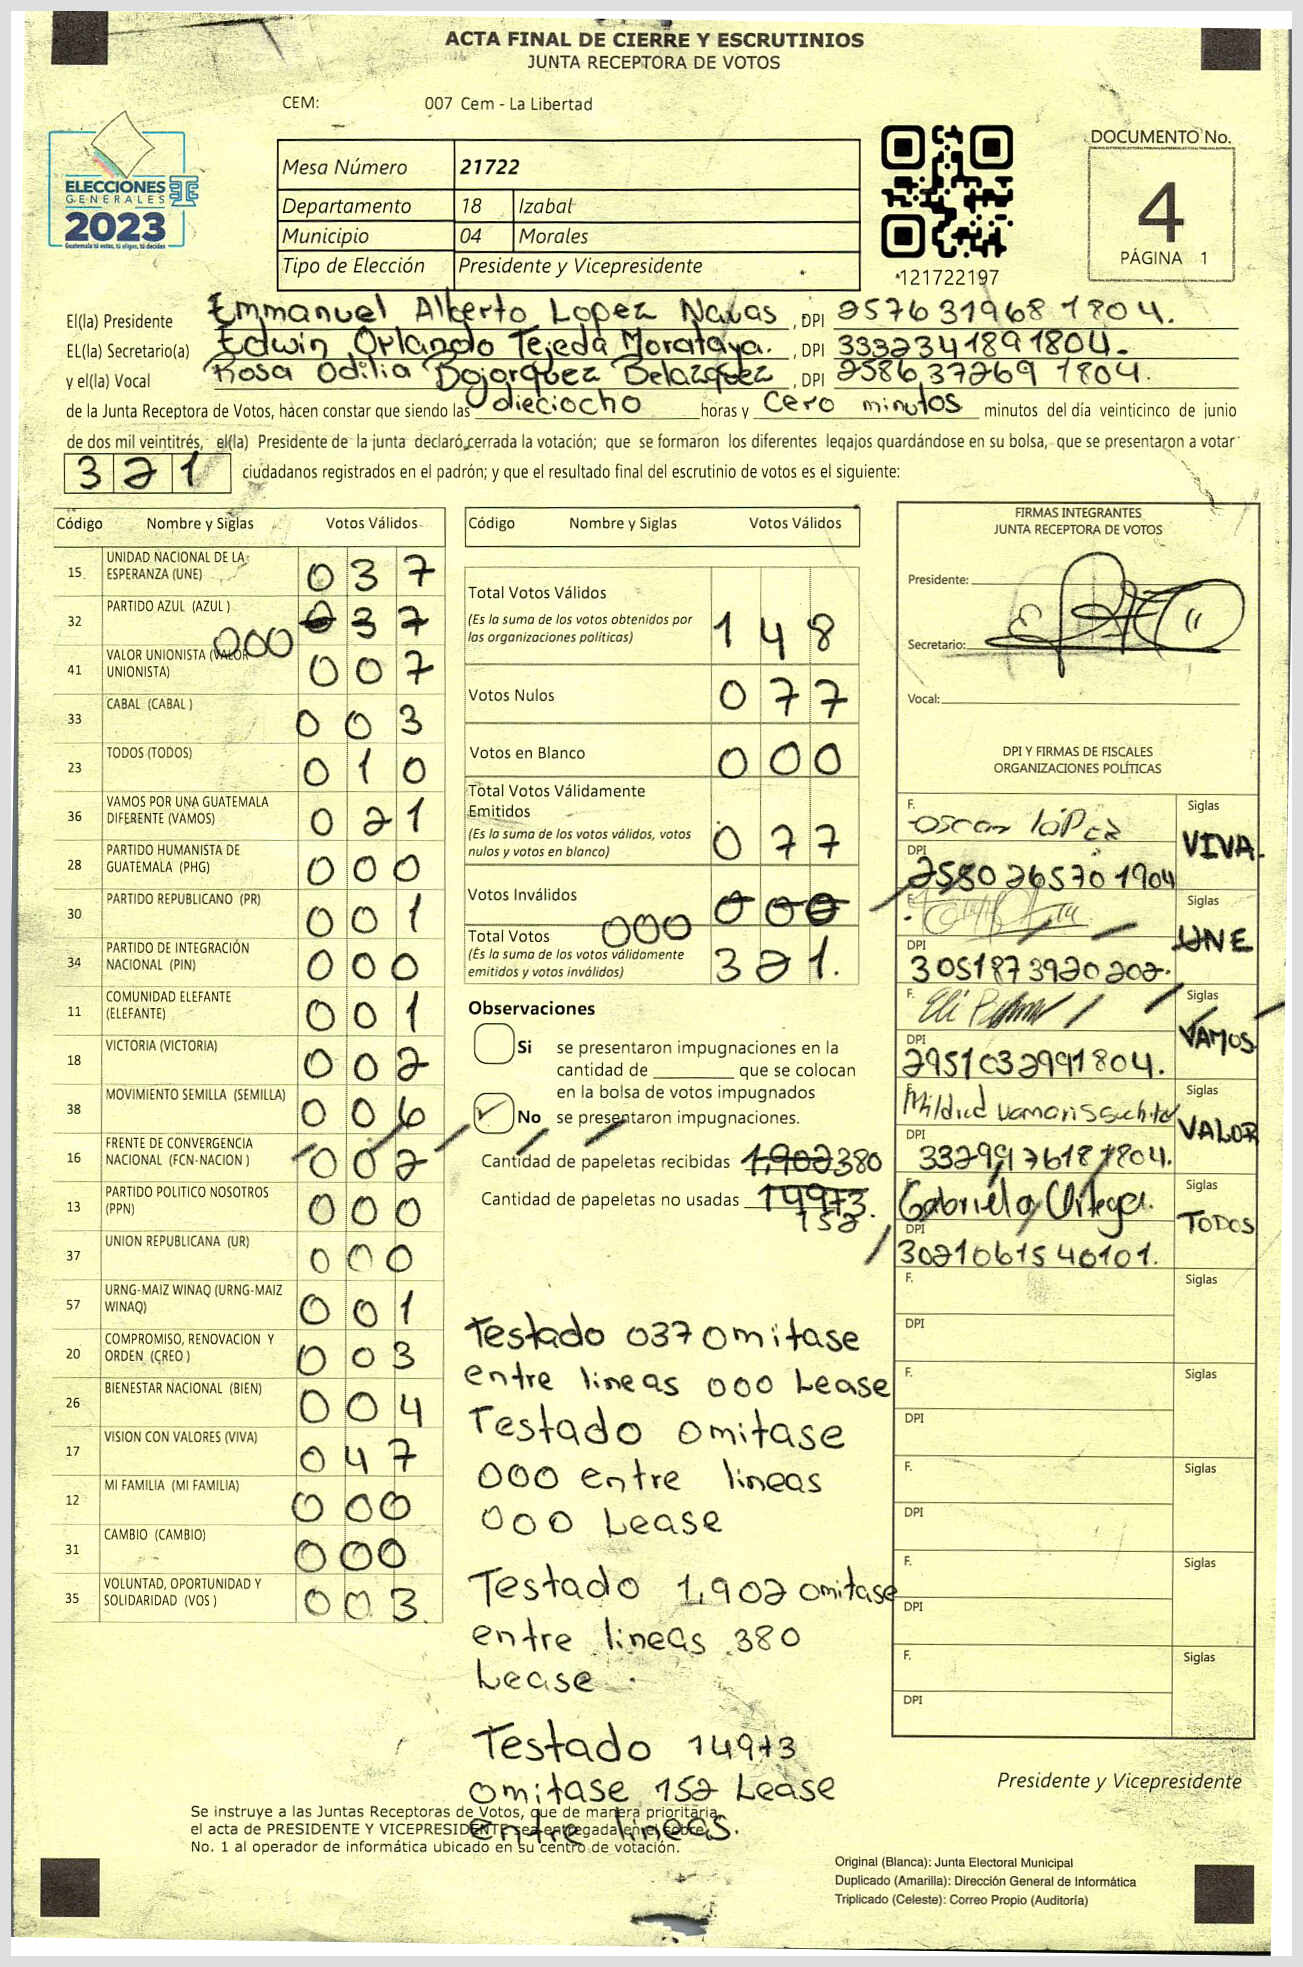 ACTA FINAL DE CIERRE Y ESCRUTINIOS
JUNTA RECEPTORA DE VOTOS
CEM: 007 Cem - La Libertad
ELECCIONES
GENERALES
2023
Guatemala tú votas, tú eliges, tú decides
Mesa Número 21722
Departamento 18 Izabal
Municipio 04 Morales
Tipo de Elección Presidente y Vicepresidente
*121722197
DOCUMENTO No.
4
PÁGINA 1
El(la) Presidente Emmanuel Alberto Lopez Navas , DPI 2576319681804.
EL(la) Secretario(a) Edwin Orlando Tejeda Morataya. , DPI 3332341891804.
y el(la) Vocal Rosa Odilia Bojorquez Belazquez , DPI 2586372691804.
de la Junta Receptora de Votos, hacen constar que siendo las dieciocho horas y Cero minutos minutos del día veinticinco de junio
de dos mil veintitrés, el(la) Presidente de la junta declaró cerrada la votación; que se formaron los diferentes legajos guardándose en su bolsa, que se presentaron a votar
321 ciudadanos registrados en el padrón; y que el resultado final del escrutinio de votos es el siguiente:
Código Nombre y Siglas Votos Válidos
15 UNIDAD NACIONAL DE LA ESPERANZA (UNE) 037
32 PARTIDO AZUL (AZUL ) 037 000
41 VALOR UNIONISTA (VALOR UNIONISTA) 007
33 CABAL (CABAL ) 003
23 TODOS (TODOS) 010
36 VAMOS POR UNA GUATEMALA DIFERENTE (VAMOS) 021
28 PARTIDO HUMANISTA DE GUATEMALA (PHG) 000
30 PARTIDO REPUBLICANO (PR) 001
34 PARTIDO DE INTEGRACIÓN NACIONAL (PIN) 000
11 COMUNIDAD ELEFANTE (ELEFANTE) 001
18 VICTORIA (VICTORIA) 002
38 MOVIMIENTO SEMILLA (SEMILLA) 006
16 FRENTE DE CONVERGENCIA NACIONAL (FCN-NACION ) 002
13 PARTIDO POLITICO NOSOTROS (PPN) 000
37 UNION REPUBLICANA (UR) 000
57 URNG-MAIZ WINAQ (URNG-MAIZ WINAQ) 001
20 COMPROMISO, RENOVACION Y ORDEN (CREO ) 003
26 BIENESTAR NACIONAL (BIEN) 004
17 VISION CON VALORES (VIVA) 047
12 MI FAMILIA (MI FAMILIA) 000
31 CAMBIO (CAMBIO) 000
35 VOLUNTAD, OPORTUNIDAD Y SOLIDARIDAD (VOS ) 003.
Código Nombre y Siglas Votos Válidos
Total Votos Válidos 148
(Es la suma de los votos obtenidos por
las organizaciones políticas)
Votos Nulos 077
Votos en Blanco 000
Total Votos Válidamente
Emitidos 077
(Es la suma de los votos válidos, votos
nulos y votos en blanco)
Votos Inválidos 000
000
Total Votos 321.
(Es la suma de los votos válidamente
emitidos y votos inválidos)
Observaciones
Si se presentaron impugnaciones en la
cantidad de ________ que se colocan
en la bolsa de votos impugnados
No se presentaron impugnaciones.
Cantidad de papeletas recibidas 1,902 380
Cantidad de papeletas no usadas 14973.
152
Testado 037 omitase
entre lineas 000 Lease
Testado omitase
000 entre lineas
000 Lease
Testado 1,902 omitase
entre lineas 380
Lease
Testado 14973
omitase 152 Lease
entre lineas.
FIRMAS INTEGRANTES
JUNTA RECEPTORA DE VOTOS
Presidente:
Secretario:
Vocal:
DPI Y FIRMAS DE FISCALES
ORGANIZACIONES POLÍTICAS
F. Oscar lópez Siglas VIVA.
DPI 2580265701904
F. Siglas UNE
DPI 3051873920202.
F. Eli Siglas VAMOS
DPI 2951032991804.
F. Mildred Siglas VALOR
DPI 3329976181804.
F. Gabriela Ortega. Siglas TODOS
DPI 3021061540101.
F. Siglas
DPI
F. Siglas
DPI
F. Siglas
DPI
F. Siglas
DPI
F. Siglas
DPI
Presidente y Vicepresidente
Se instruye a las Juntas Receptoras de Votos, que de manera prioritaria,
el acta de PRESIDENTE Y VICEPRESIDENTE sea entregada en el sobre
No. 1 al operador de informática ubicado en su centro de votación.
Original (Blanca): Junta Electoral Municipal
Duplicado (Amarilla): Dirección General de Informática
Triplicado (Celeste): Correo Propio (Auditoría)